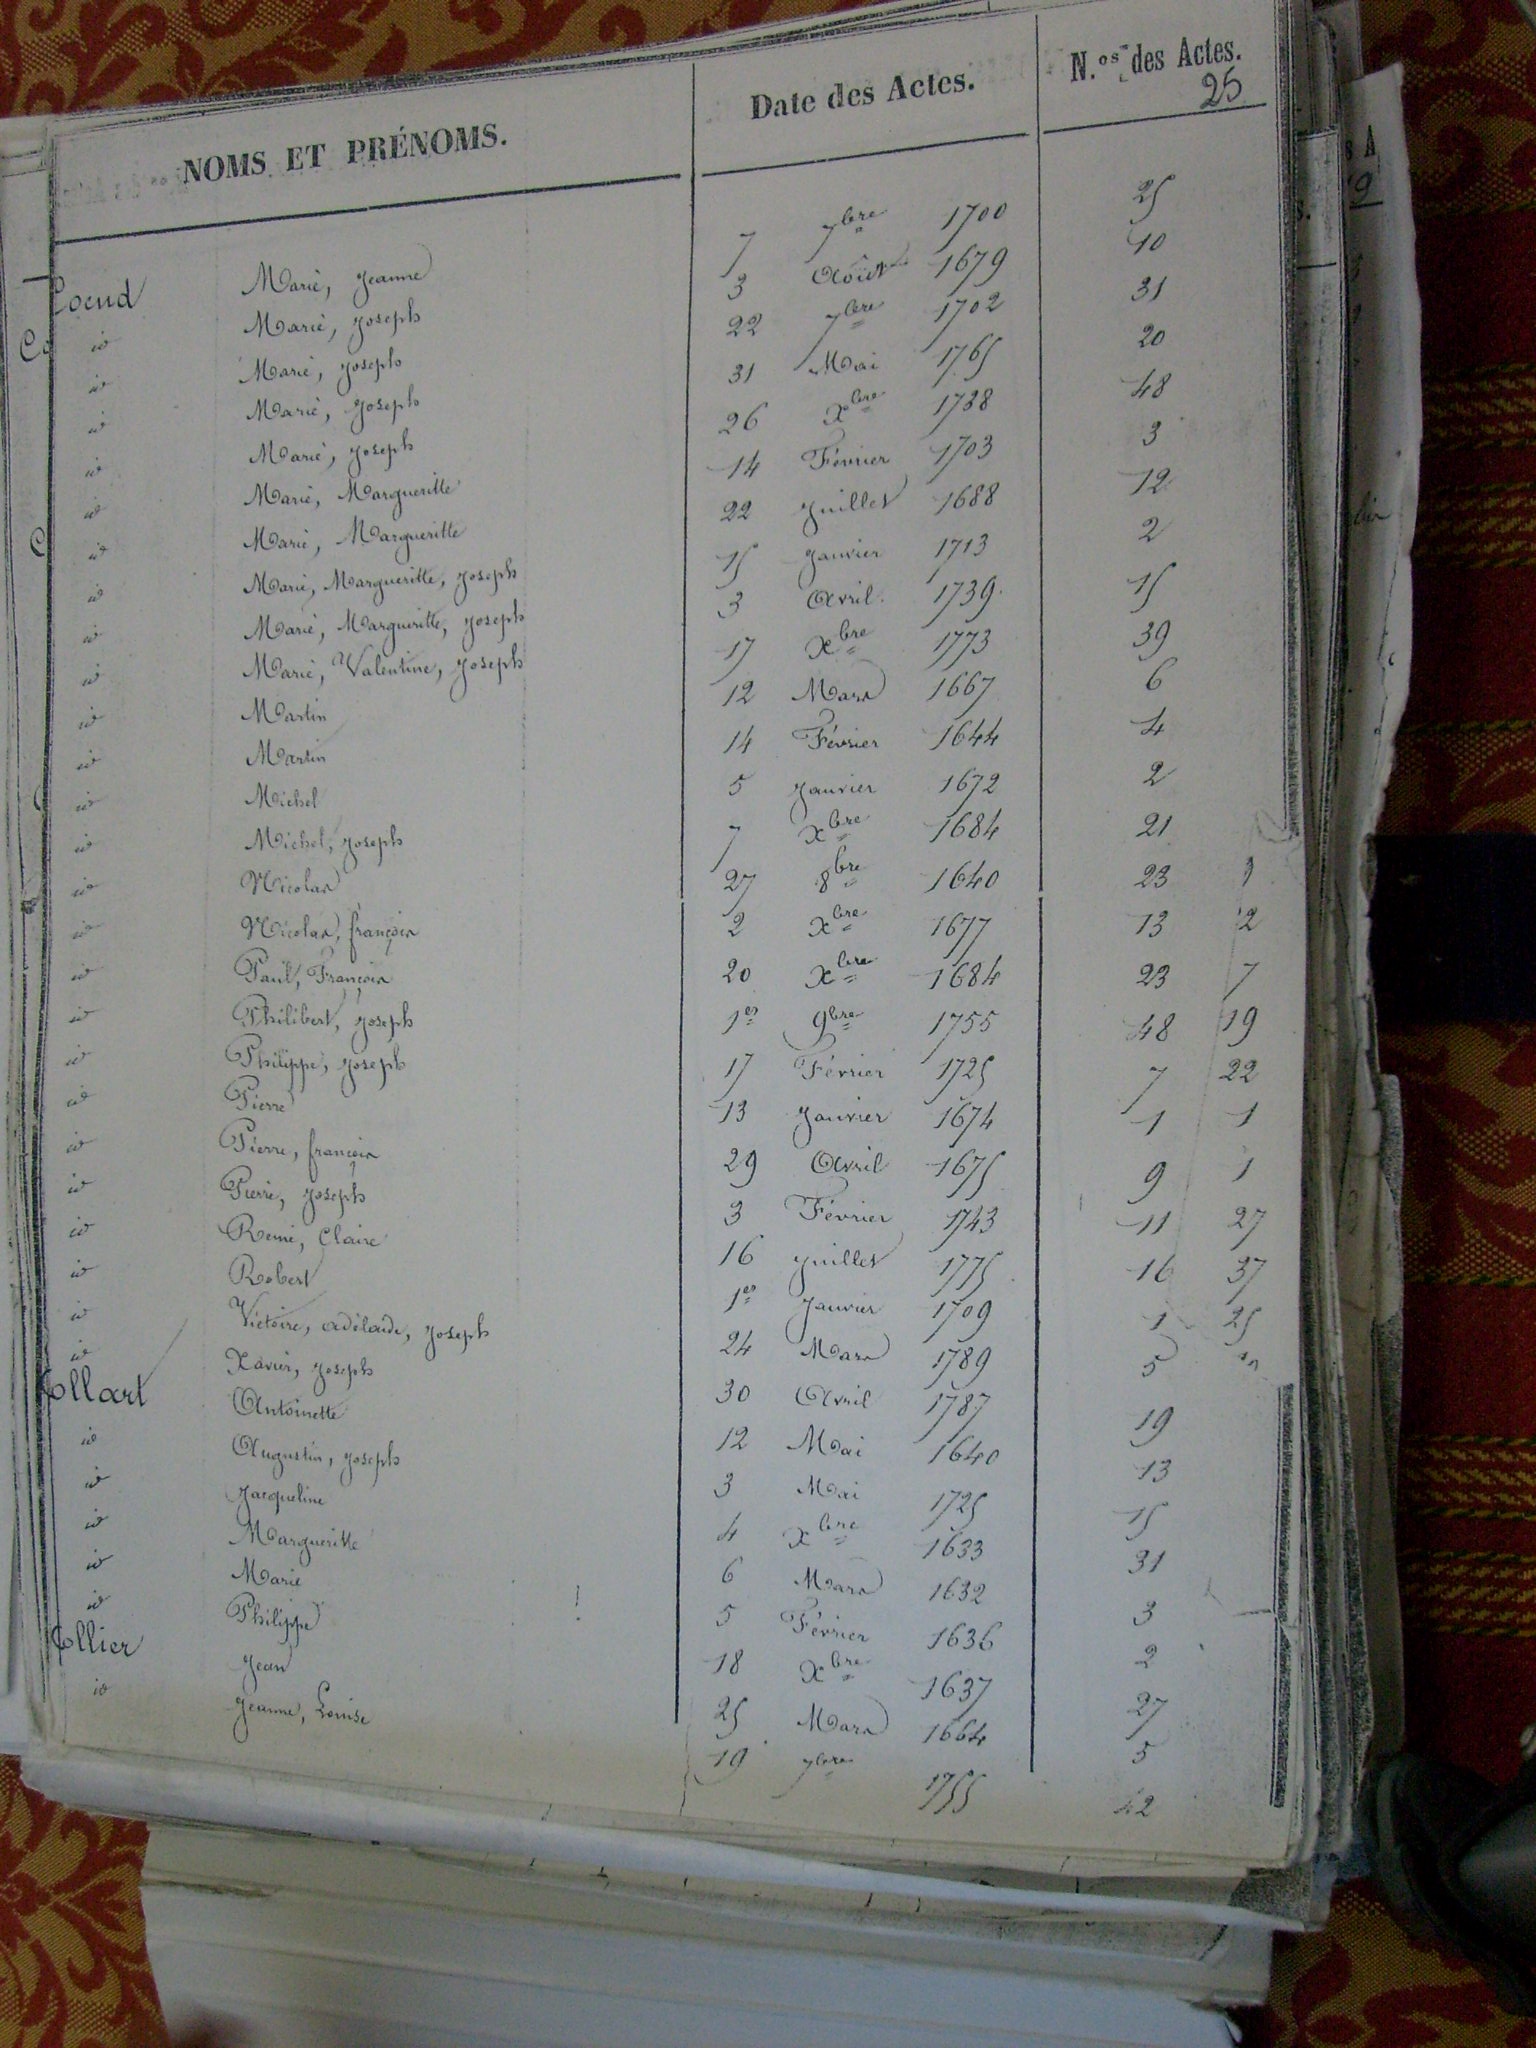 NOMS ET PRÉNOMS. Date des Actes. N.os des Actes.
25
Coeud Marie, Jeanne 7 7bre 1700 25
id Marie, Joseph 3 Août 1679 10
id Marie, Joseph 22 7bre 1702 31
id Marie, Joseph 31 Mai 1765 20
id Marie, Joseph 26 Xbre 1738 48
id Marie, Margueritte 14 Février 1703 3
id Marie, Margueritte 22 Juillet 1688 12
id Marie, Margueritte, Joseph 15 Janvier 1713 2
id Marie, Margueritte, Joseph 3 Avril 1739 15
id Marie, Valentine, Joseph 17 Xbre 1773 39
id Martin 12 Mars 1667 6
id Martin 14 Février 1644 4
id Michel 5 Janvier 1672 2
id Michel, Joseph 7 Xbre 1684 21
id Nicolas 27 8bre 1640 23
id Nicolas, françois 2 Xbre 1677 13 2
id Paul, François 20 Xbre 1684 23 7
id Philibert, Joseph 1er 9bre 1755 48 19
id Philippe, Joseph 17 Février 1725 7 22
id Pierre 13 Janvier 1674 1 1
id Pierre, françois 29 Avril 1675 9 1
id Pierre, Joseph 3 Février 1743 11 27
id Reine, Claire 16 Juillet 1775 16 37
id Robert 1er Janvier 1709 1 25
id Victoire, adélaide, Joseph 24 Mars 1789 5
id Xavier, Joseph 30 Avril 1787 19
Collart Antoinette 12 Mai 1640 13
id Augustin, Joseph 3 Mai 1725 15
id Jacqueline 4 Xbre 1633 31
id Margueritte 6 Mars 1632 3
id Marie 5 Février 1636 2
id Philippe 18 Xbre 1637 27
Collier Jean 25 Mars 1664 5
id Jeanne, Louise 19 7bre 1755 42